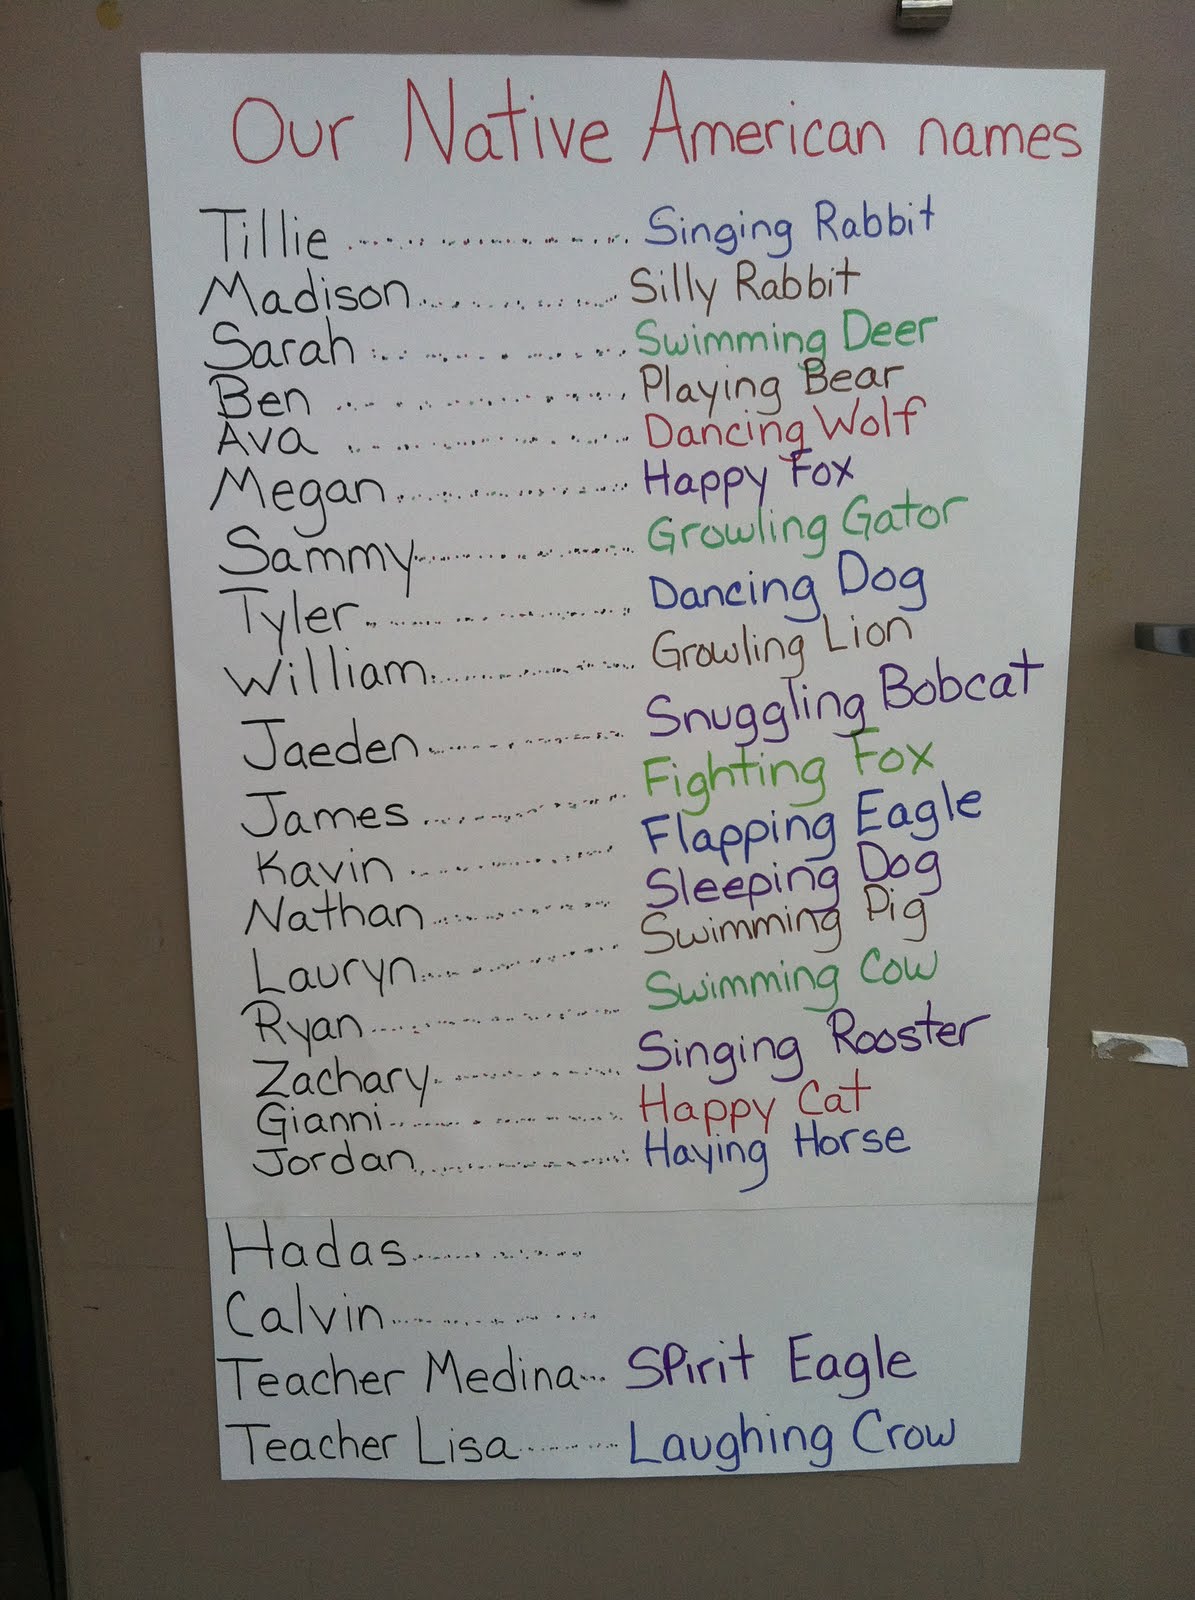 Our Native American names
Tillie .................. Singing Rabbit
Madison .................. Silly Rabbit
Sarah .................. Swimming Deer
Ben .................. Playing Bear
Ava .................. Dancing Wolf
Megan .................. Happy Fox
Sammy .................. Growling Gator
Tyler .................. Dancing Dog
William .................. Growling Lion
Jaeden .................. Snuggling Bobcat
James .................. Fighting Fox
Kavin .................. Flapping Eagle
Nathan .................. Sleeping Dog
Lauryn .................. Swimming Pig
Ryan .................. Swimming Cow
Zachary .................. Singing Rooster
Gianni .................. Happy Cat
Jordan .................. Haying Horse
Hadas ..................
Calvin ..................
Teacher Medina... SPirit Eagle
Teacher Lisa .......... Laughing Crow